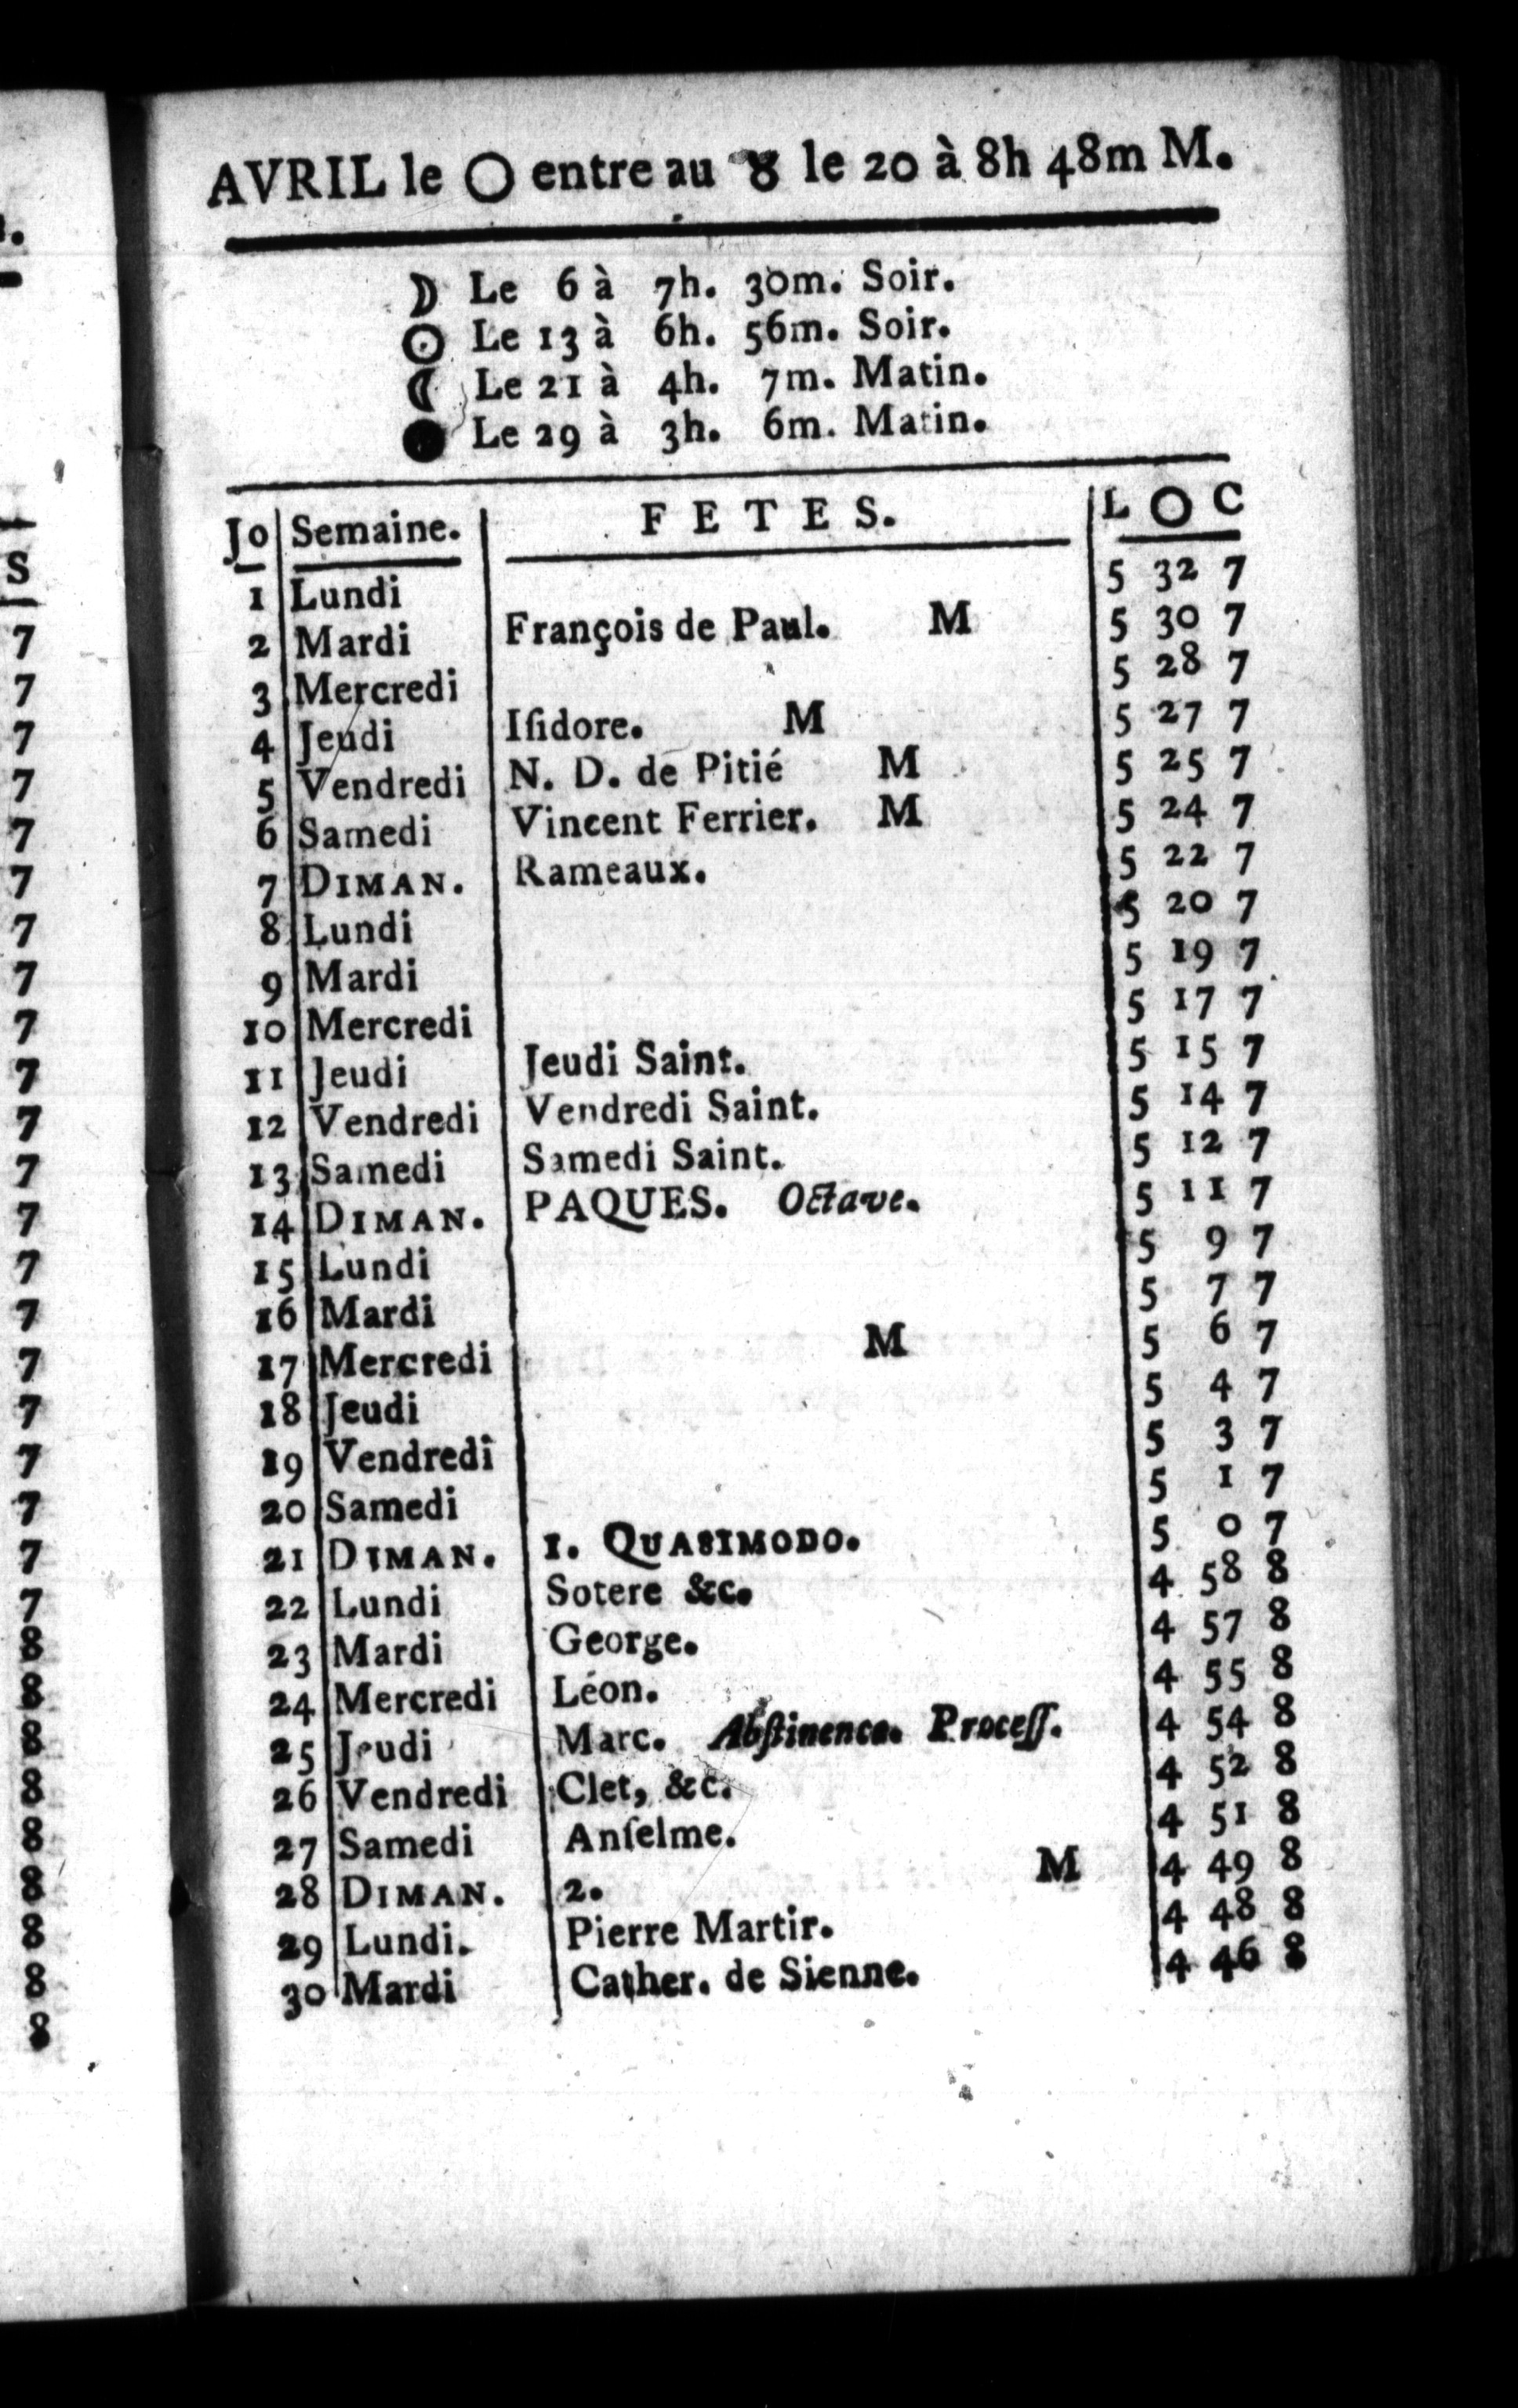 AVRIL le ○ entre au ♉ le 20 à 8h 48m M.
☽ Le 6 à 7h. 30m. Soir.
☉ Le 13 à 6h. 56m. Soir.
☾ Le 21 à 4h. 7m. Matin.
● Le 29 à 3h. 6m. Matin.
Jo Semaine. FETES. L ○ C
1 Lundi 5 32 7
2 Mardi François de Paul. M 5 30 7
3 Mercredi 5 28 7
4 Jeudi Iſidore. M 5 27 7
5 Vendredi N. D. de Pitié M 5 25 7
6 Samedi Vincent Ferrier. M 5 24 7
7 DIMAN. Rameaux. 5 22 7
8 Lundi 5 20 7
9 Mardi 5 19 7
10 Mercredi 5 17 7
11 Jeudi Jeudi Saint. 5 15 7
12 Vendredi Vendredi Saint. 5 14 7
13 Samedi Samedi Saint. 5 12 7
14 DIMAN. PAQUES. Octave. 5 11 7
15 Lundi 5 9 7
16 Mardi 5 7 7
17 Mercredi M 5 6 7
18 Jeudi 5 4 7
19 Vendredi 5 3 7
20 Samedi 5 1 7
21 DIMAN. 1. QUASIMODO. 5 0 7
22 Lundi Sotere &c. 4 58 8
23 Mardi George. 4 57 8
24 Mercredi Léon. 4 55 8
25 Jeudi Marc. Abſtinence. Proceſſ. 4 54 8
26 Vendredi Clet, &c. 4 52 8
27 Samedi Anſelme. 4 51 8
28 DIMAN. 2. M 4 49 8
29 Lundi. Pierre Martir. 4 48 8
30 Mardi Cather. de Sienne. 4 46 8